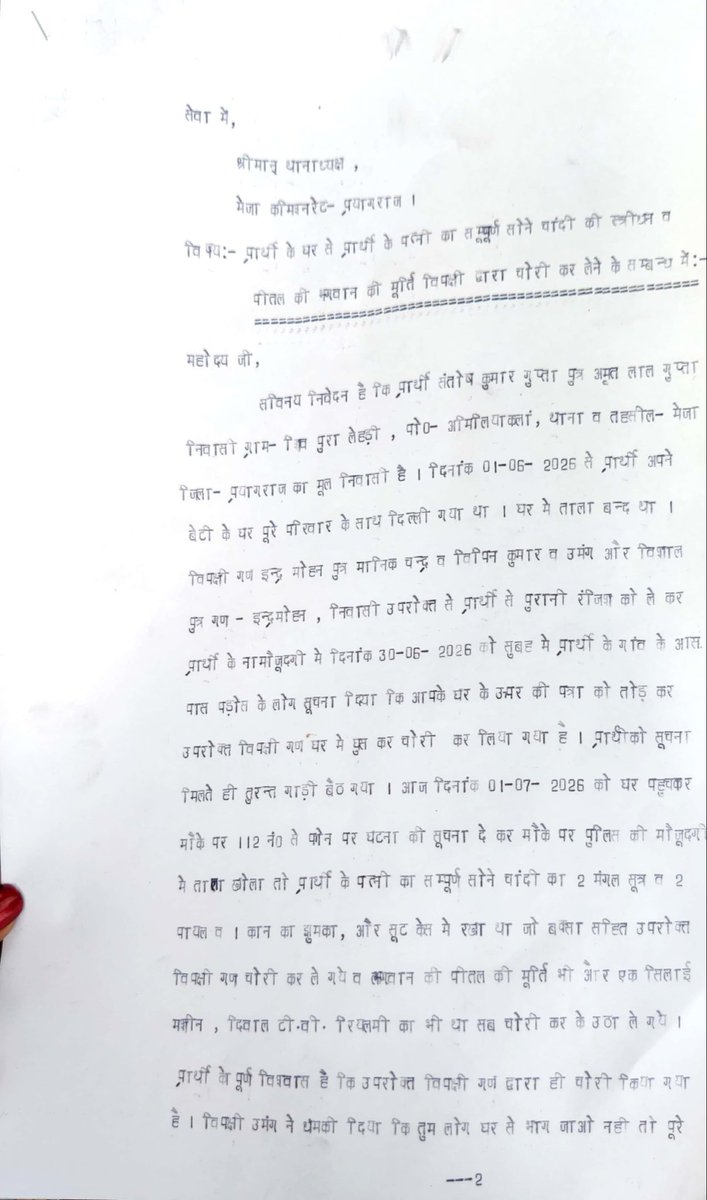 सेवा में,
श्रीमान् थानाध्यक्ष ,
मेजा कमिश्नरेट- प्रयागराज ।
विषय:- प्रार्थी के घर से प्रार्थी के पत्नी का सम्पूर्ण सोने चांदी की स्त्रीधन व
पीतल की भगवान की मूर्ति विपक्षी द्वारा चोरी कर लेने के सम्बन्ध में:-
महोदय जी,
सविनय निवेदन है कि प्रार्थी संतोष कुमार गुप्ता पुत्र अमृत लाल गुप्ता
निवासी ग्राम- शिव पुरा लेहड़ी , पो0- अमिलियाकलां, थाना व तहसील- मेजा
जिला- प्रयागराज का मूल निवासी है । दिनांक 01-06- 2026 से प्रार्थी अपने
बेटी के घर पूरे परिवार के साथ दिल्ली गया था । घर मे ताला बन्द था ।
विपक्षी गण इन्द्र मोहन पुत्र मानिक चन्द्र व विपिन कुमार व उमंग और विशाल
पुत्र गण - इन्द्रमोहन , निवासी उपरोक्त से प्रार्थी से पुरानी रंजिश को ले कर
प्रार्थी के नामौजूदगी मे दिनांक 30-06- 2026 को सुबह मे प्रार्थी के गांव के आस
पास पड़ोस के लोग सूचना दिया कि आपके घर के उपर की पत्रा को तोड़ कर
उपरोक्त विपक्षी गण घर मे घुस कर चोरी कर लिया गया है । प्रार्थीको सूचना
मिलते ही तुरन्त गाड़ी बैठ गया । आज दिनांक 01-07- 2026 को घर पहुचकर
मौके पर 112 नं0 से फोन पर घटना की सूचना दे कर मौके पर पुलिस की मौजूदगी
मे ताला खोला तो प्रार्थी के पत्नी का सम्पूर्ण सोने चांदी का 2 मंगल सूत्र व 2
पायल व 1 कान का झुमका, और सूट केस मे रखा था जो बक्सा सहित उपरोक्त
विपक्षी गण चोरी कर ले गये व भगवान की पीतल की मूर्ति भी और एक सिलाई
मशीन , दिवाल टी.वी. रियलमी का भी था सब चोरी कर के उठा ले गये ।
प्रार्थी के पूर्ण विश्वास है कि उपरोक्त विपक्षी गण द्वारा ही चोरी किया गया
है । विपक्षी उमंग ने धमकी दिया कि तुम लोग घर से भाग जाओ नही तो पूरे
---2